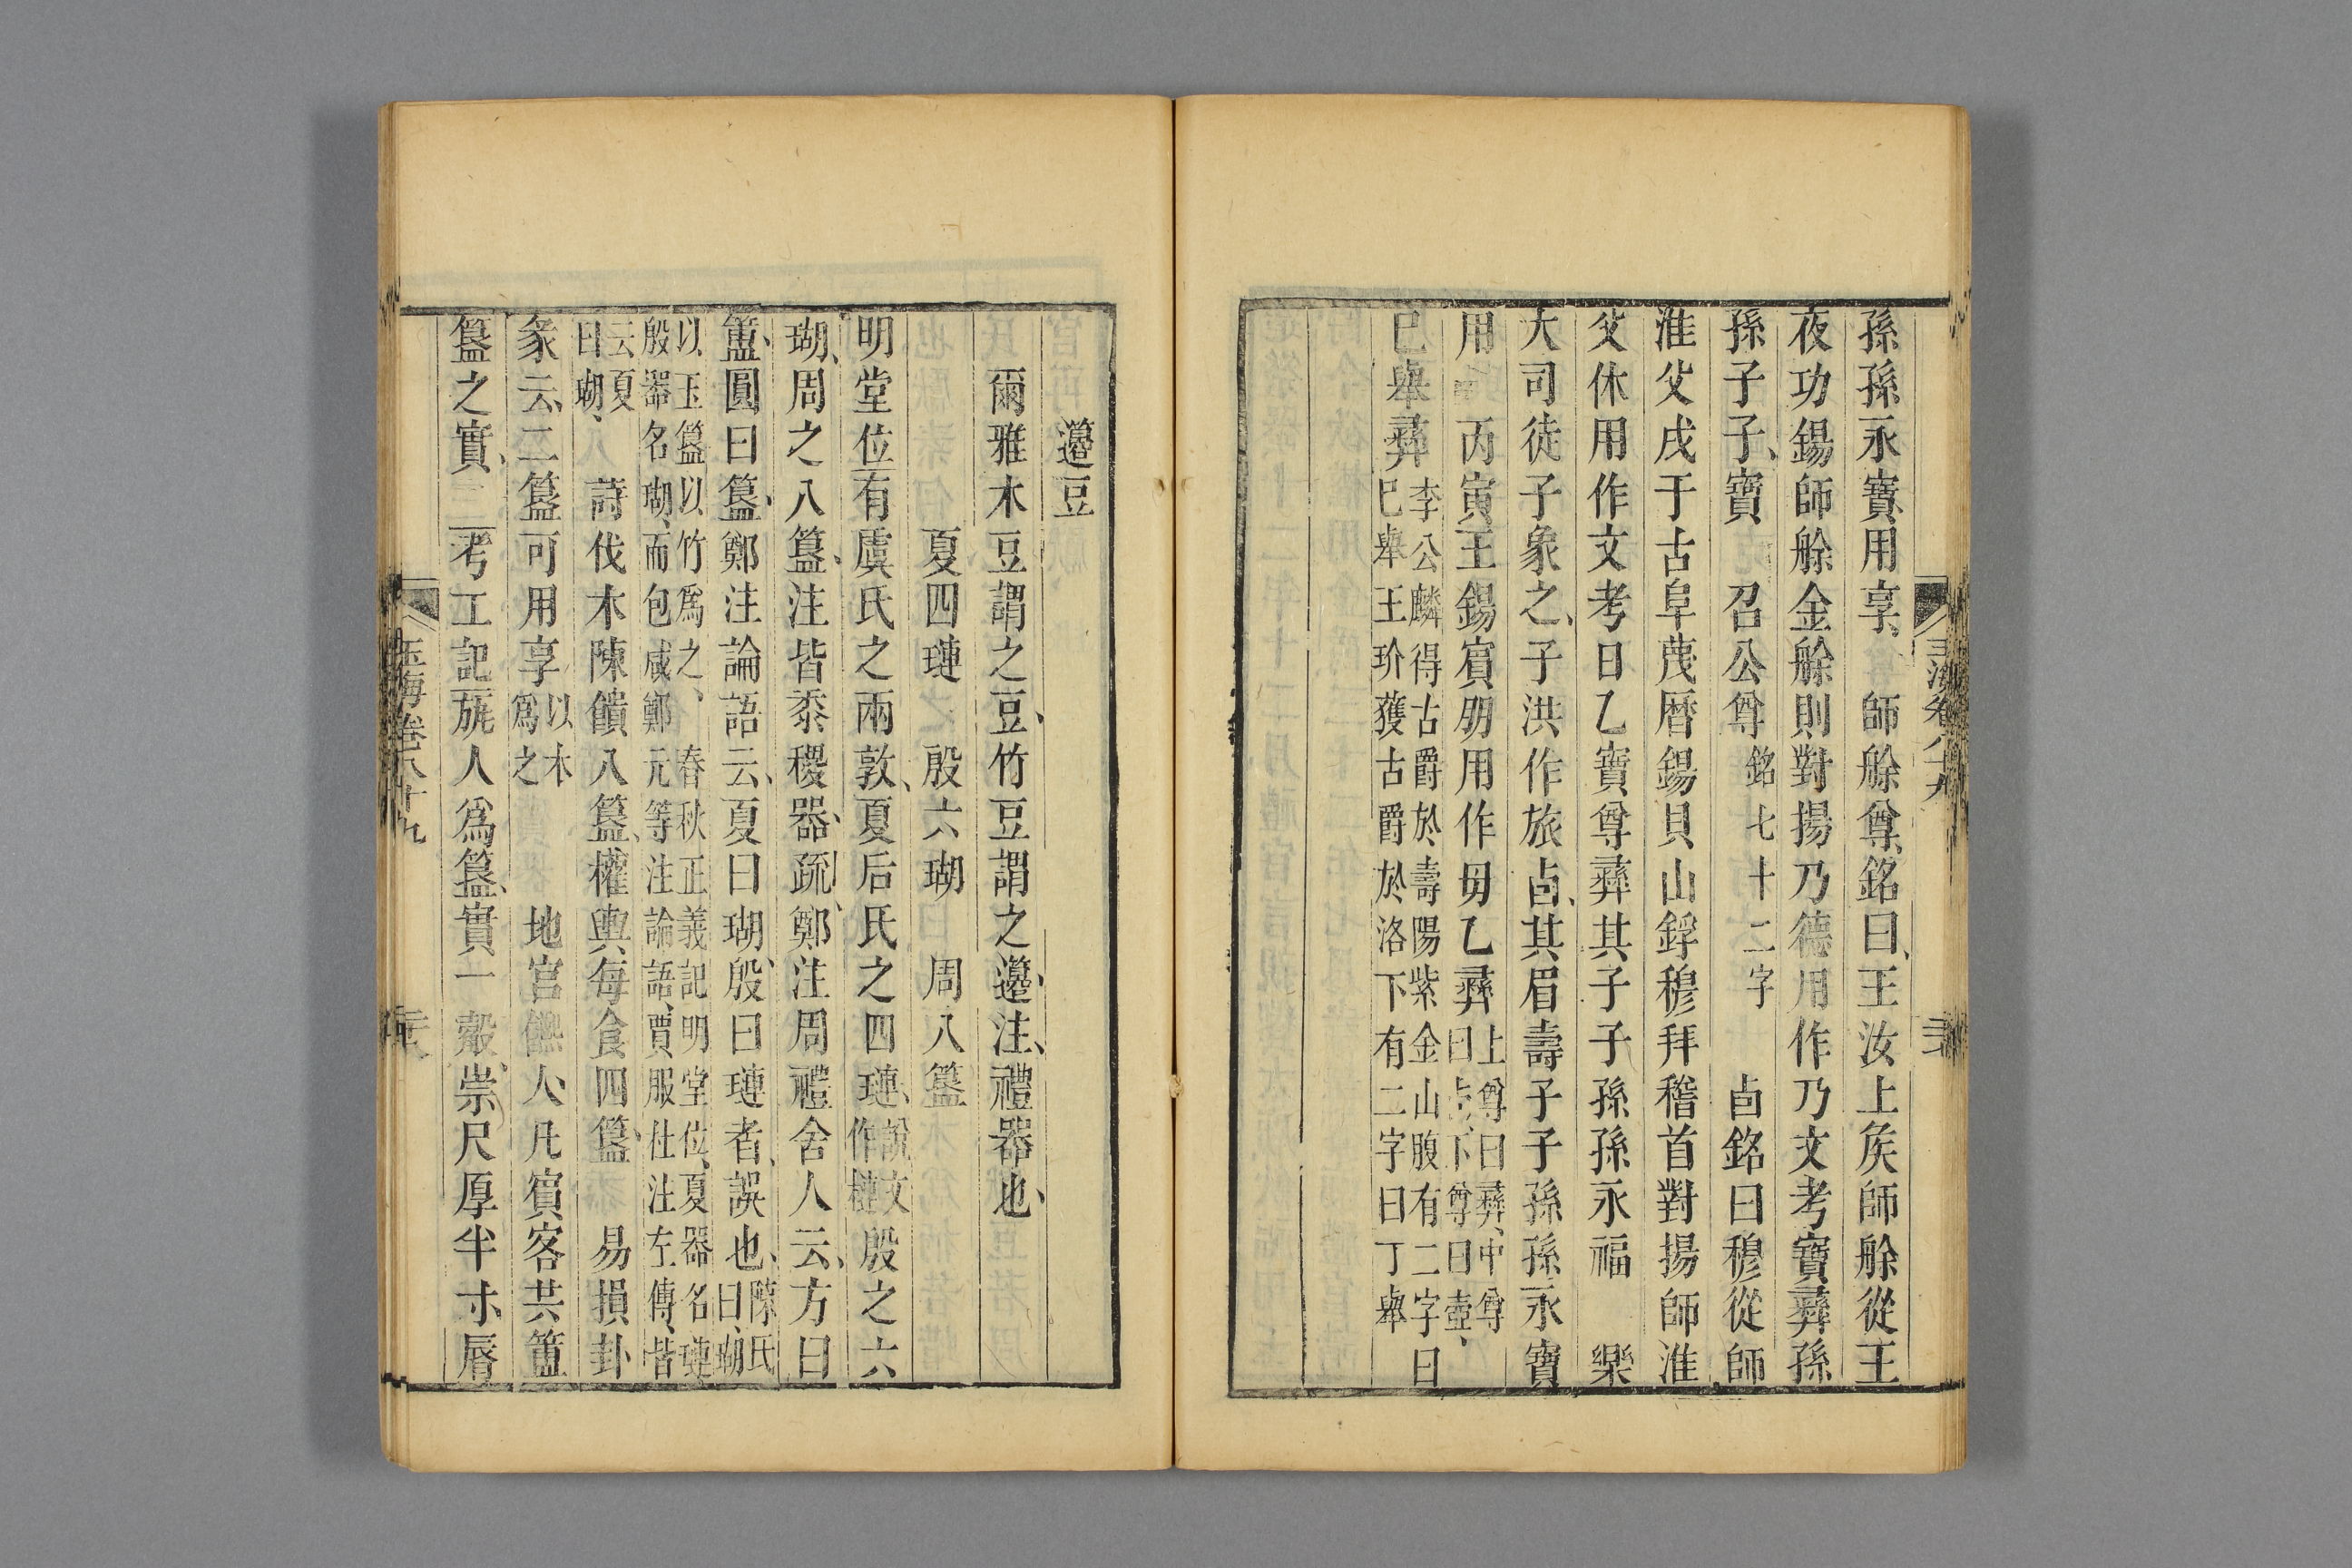 孫孫永寶用享 師艅尊銘曰王汝上矦師艅從王
夜功錫師艅金艅則對揚乃德用作乃文考寶彝孫
孫子子寶 召公尊銘七十二字 卣銘曰穆從師
淮父戍于古阜蔑曆錫貝山鋝穆拜稽首對揚師淮
父休用作文考日乙寶尊彝其子子孫孫永福 樂
大司徒子象之子洪作旅卣其眉壽子子孫孫永寶
用 丙寅王錫賔朋用作毋乙彝上尊曰彝中尊曰卣下尊曰壺
巳舉彝李公麟得古爵於壽陽紫金山腹有二字曰巳舉王玠獲古爵於洛下有二字曰丁舉
玉海卷八十九
籩豆
爾雅木豆謂之豆竹豆謂之籩注禮器也
夏四璉 殷六瑚 周八簋
明堂位有虞氏之兩敦夏后氏之四璉說文作槤殷之六
瑚周之八簋注皆黍稷器疏鄭注周禮舍人云方曰
簠圓曰簋鄭注論語云夏曰瑚殷曰璉者誤也陳氏曰瑚
以玉簋以竹爲之 春秋正義記明堂位夏器名璉殷器名瑚而包咸鄭元等注論語賈服杜注左傳皆
云夏曰瑚 詩伐木陳饋八簋權輿每食四簋 易損卦
彖云二簋可用享以木爲之 地官饎人凡賔客共簠
簋之實 考工記旊人爲簋實一觳崇尺厚半寸脣
玉海卷八十九